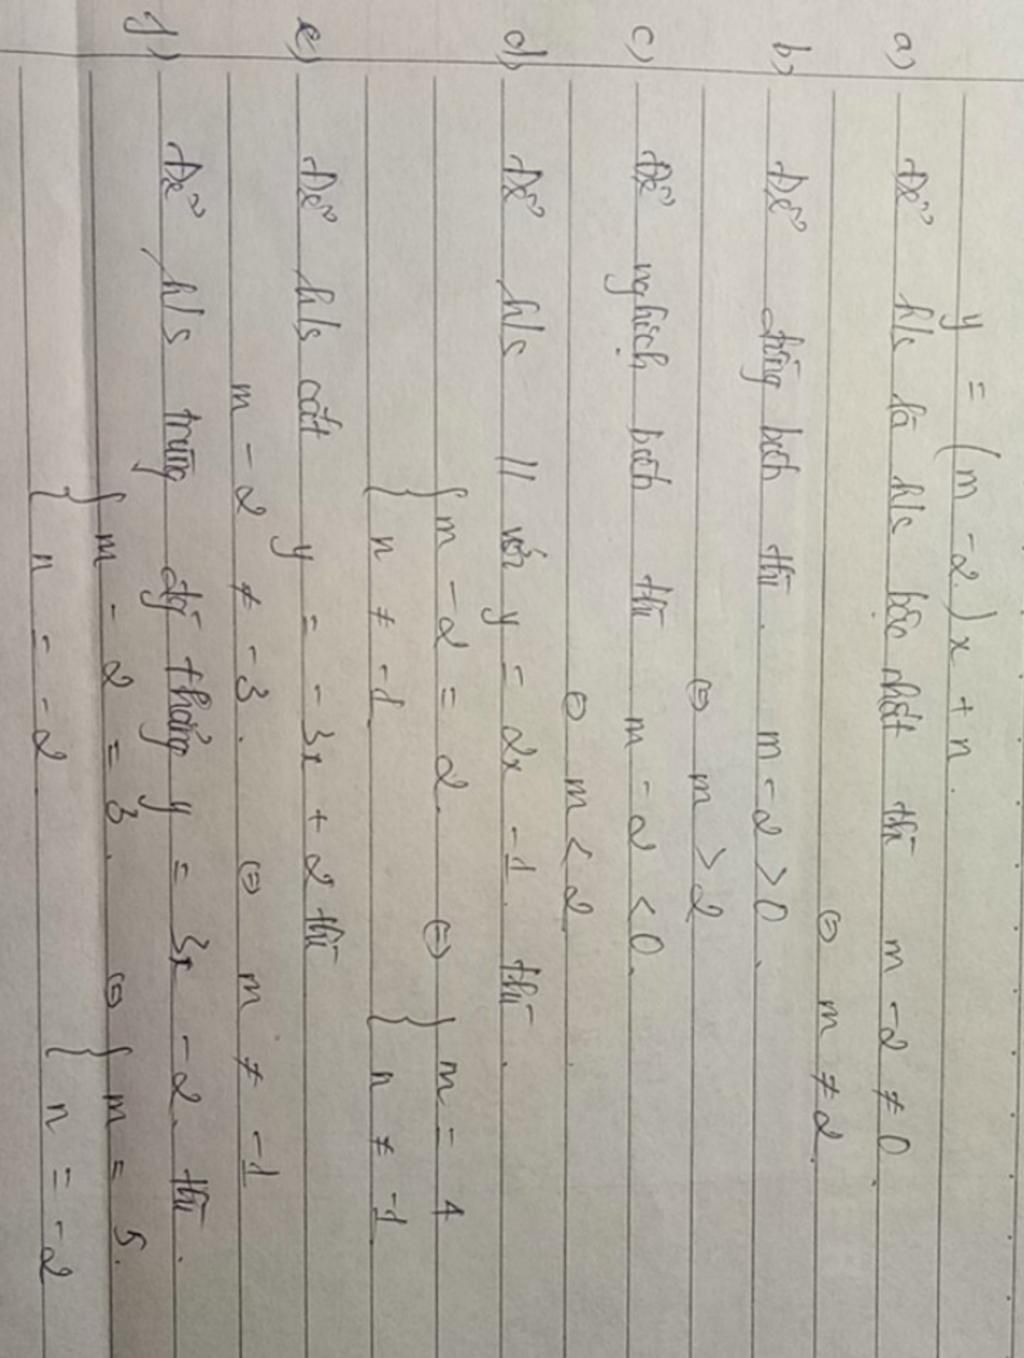 y = (m - 2)x + n.
a) Để h/s là h/s bậc nhất thì m - 2 ≠ 0.
⇔ m ≠ 2.
b) Để đồng biến thì. m - 2 > 0.
⇔ m > 2
c) Để nghịch biến thì m - 2 < 0.
⇔ m < 2
d) Để h/s // với y = 2x - 1. thì.
{ m - 2 = 2. ⇔ { m = 4
{ n ≠ -1. { n ≠ -1
e) Để h/s cắt y = - 3x + 2 thì
m - 2 ≠ - 3. ⇔ m ≠ -1
f) Để h/s trùng đg thẳng y = 3x - 2. thì.
{ m - 2 = 3. ⇔ { m = 5.
{ n = - 2 { n = - 2